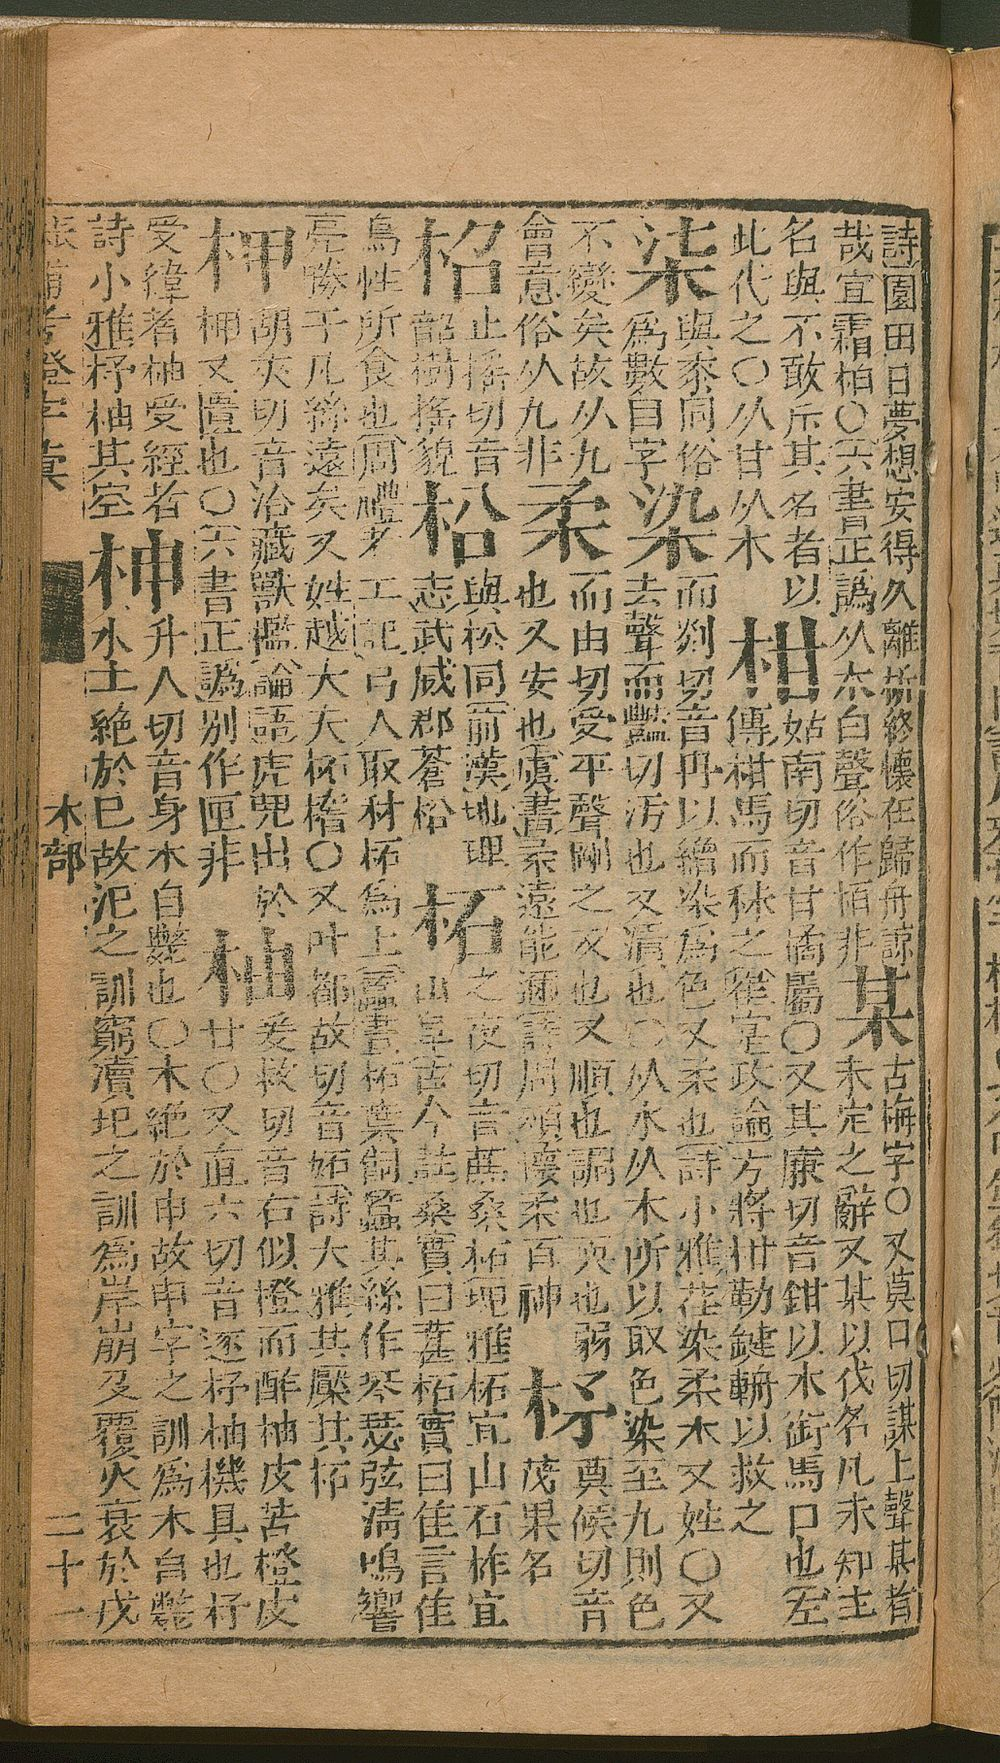 詩園田日夢想安得久離析終懷在歸舟諒
哉宜霜柏〇六書正譌从木白聲俗作栢非
某
古梅字〇又莫口切謀上聲某者
未定之辭又某以代名凡未知主
名與不敢斥其名者以
此代之〇从甘从木
柑
姑南切音甘橘屬〇又其廉切音鉗以木銜馬口也左
傳柑馬而秣之崔寔政論方將柑勒鞬輈以救之
柒
與桼同俗
爲數目字
染
而剡切音冉以繒染爲色又柔也詩小雅荏染柔木又姓〇又
去聲而豔切汚也又漬也〇从水从木所以取色染至九則色
不變矣故从九
會意俗从九非
柔
而由切受平聲剛之反也又順也調也耎也弱
也又安也虞書柔遠能邇詩周頌懷柔百神
柕
莫候切音
茂果名
柖
止搖切音
韶樹搖貌
枱
與松同前漢地理
志武威郡蒼松
柘
之夜切音蔗桑柘埤雅柘宜山石柞宜
山阜古今註桑實曰葚柘實曰隹言隹
鳥性所食也周禮考工記弓人取材柘爲上蠶書柘葉飼蠶其絲作琴瑟弦淸鳴響
亮勝于凡絲遠矣又姓越大夫柘稽〇又叶都故切音妬詩大雅其檿其柘
柙
胡夾切音洽藏獸檻論語虎兕出於
柙又匱也〇六書正譌別作匣非
柚
爰救切音右似橙而酢柚皮苦橙皮
甘〇又直六切音逐杼柚機具也杼
受緯者柚受經者
詩小雅杼柚其空
柛
升人切音身木自斃也〇木絶於申故申字之訓爲木自斃
水土絶於巳故汜之訓窮瀆圯之訓爲岸崩及覆火衰於戌
木部
二十一